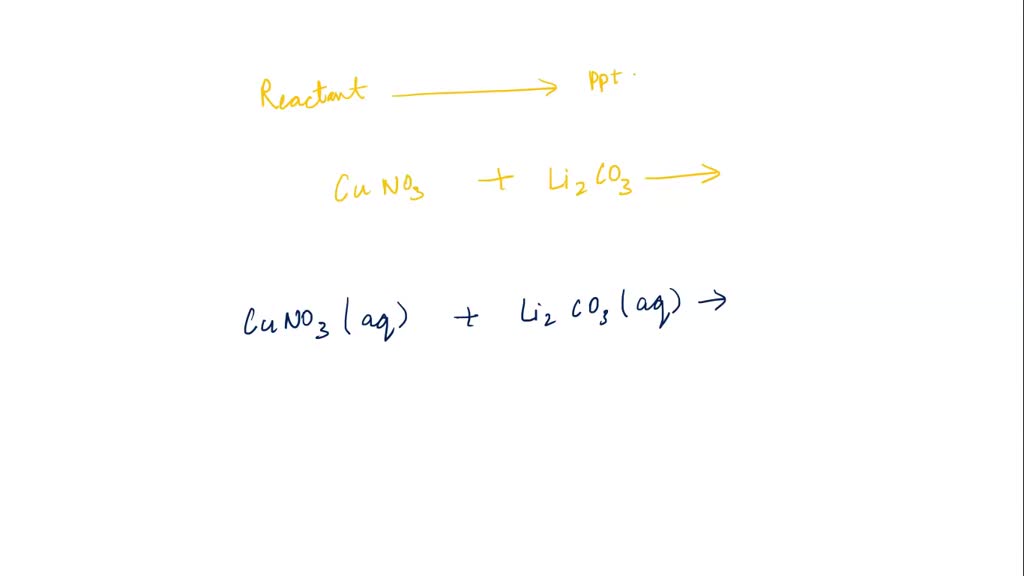 Reactant → ppt.
CuNO3 + Li2CO3 →
CuNO3(aq) + Li2CO3(aq) →